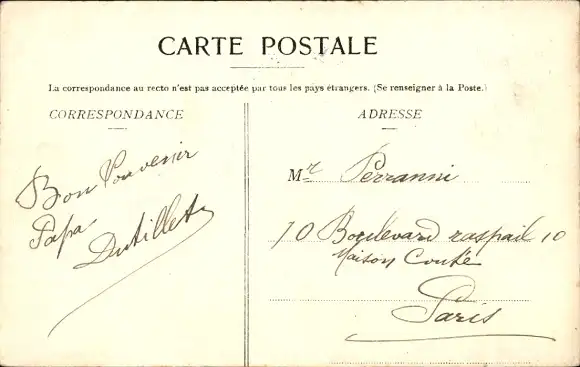 CARTE POSTALE
La correspondance au recto n'est pas acceptée par tous les pays étrangers. (Se renseigner à la Poste.)
CORRESPONDANCE
Bon Souvenir
Papa
Dutillet
ADRESSE
Mr Perranni
10 Boulevard raspail 10
Maison Couté
Paris